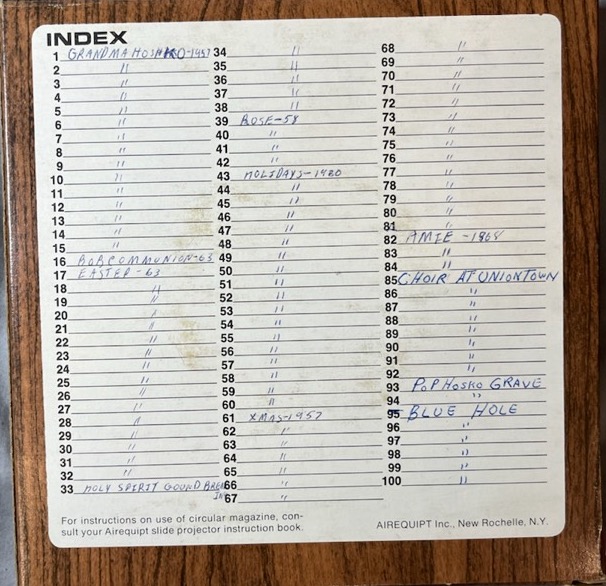 INDEX
1 GRANDMA HOSHKO-1957
2 "
3 "
4 "
5 "
6 "
7 "
8 "
9 "
10 "
11 "
12 "
13 "
14 "
15 "
16 BOB COMMUNION-63
17 EASTER-63
18 "
19 "
20 "
21 "
22 "
23 "
24 "
25 "
26 "
27 "
28 "
29 "
30 "
31 "
32 "
33 HOLY SPIRIT GOUND BREAK
ING
34 "
35 "
36 "
37 "
38 "
39 ROSE-58
40 "
41 "
42 "
43 HOLIDAYS-1980
44 "
45 "
46 "
47 "
48 "
49 "
50 "
51 "
52 "
53 "
54 "
55 "
56 "
57 "
58 "
59 "
60 "
61 XMAS-1957
62 "
63 "
64 "
65 "
66 "
67 "
68 "
69 "
70 "
71 "
72 "
73 "
74 "
75 "
76 "
77 "
78 "
79 "
80 "
81 "
82 AMIE -1968
83 "
84 "
85 CHOIR AT UNIONTOWN
86 "
87 "
88 "
89 "
90 "
91 "
92 "
93 POP HOSKO GRAVE
94 "
95 BLUE HOLE
96 "
97 "
98 "
99 "
100 "
For instructions on use of circular magazine, con-
sult your Airequipt slide projector instruction book.
AIREQUIPT Inc., New Rochelle, N.Y.